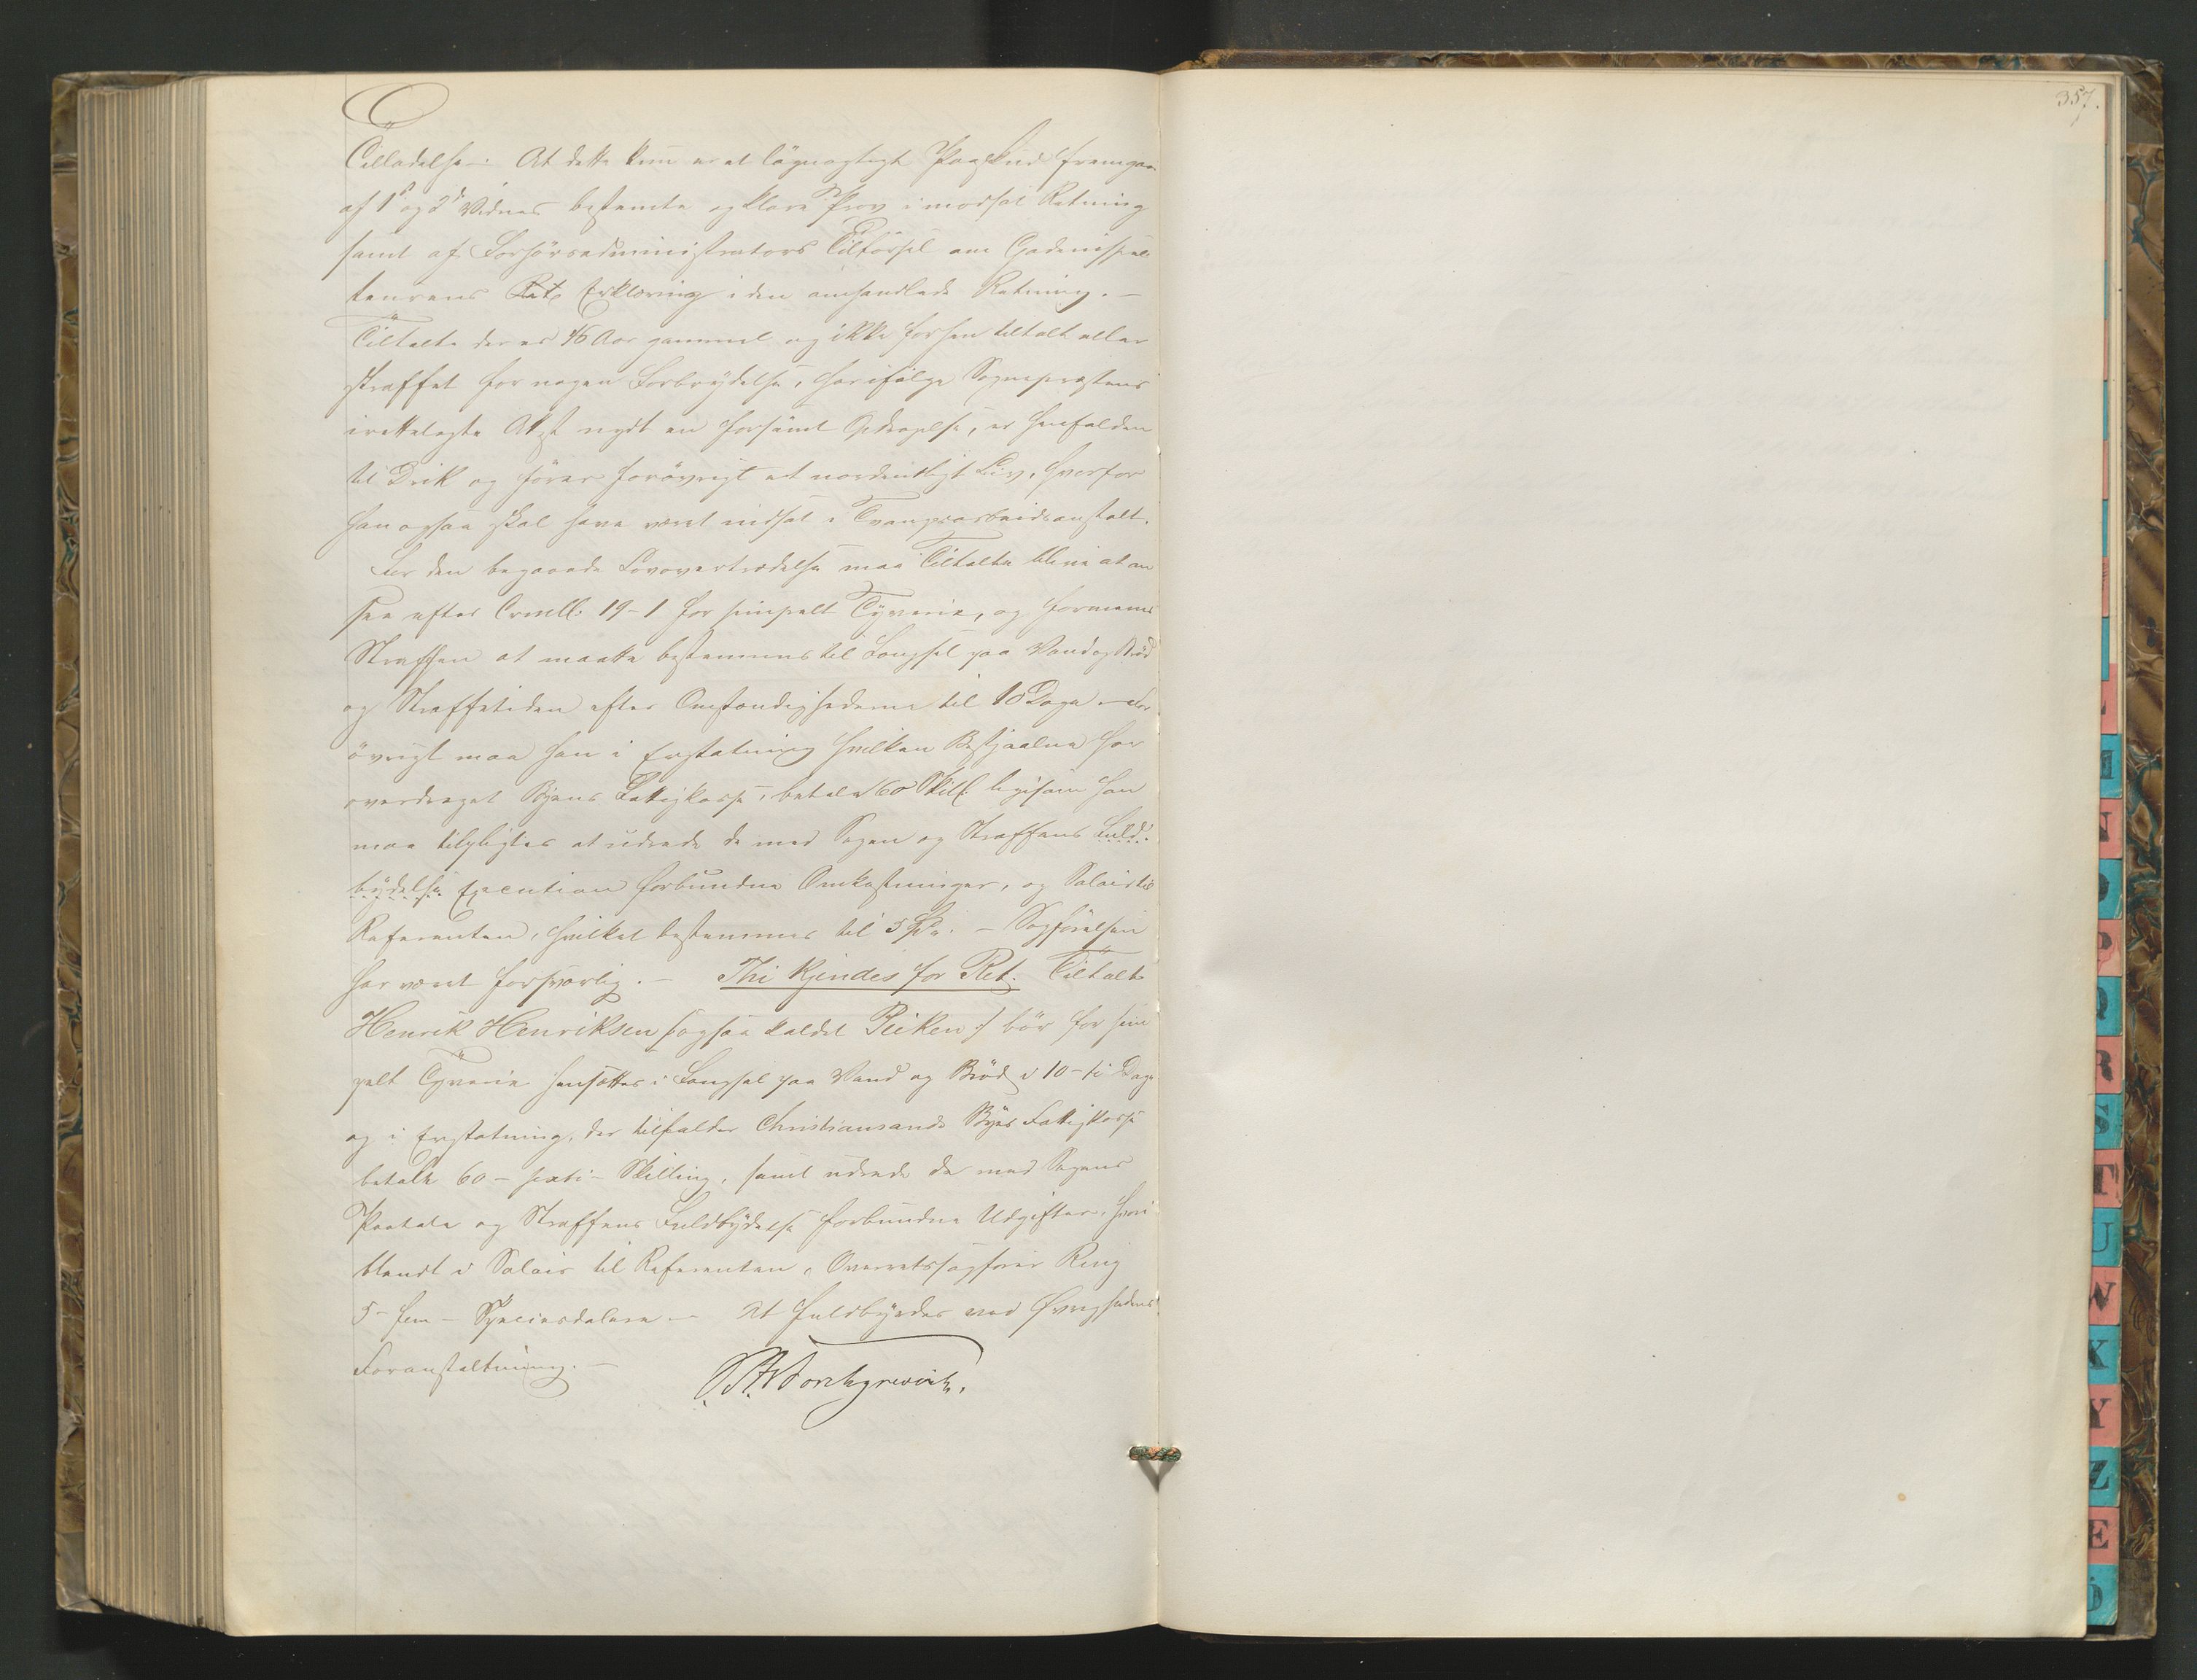 357.
Tilladelse. At dette kun er et løgnagtigt Paaskud fremgaar
af 1st og 2d Vidnes bestemte og klare Prov i modsat Retning
samt af Forhørsadministrators Tilførsel om
Erklæring i den omhandlede Retning. –
Tiltalte der er 46 Aar gammel og ikke forhen tiltalt eller
straffet for nogen Forbrydelse, har ifølge Sognepræstens
irettelagte Atst nydt en forsømt Opdragelse, er henfalden
til Drik og fører forøvrigt et uordentligt Liv, hvorfor
han ogsaa skal have været indsat i Tvangsarbeidsanstalt.
For den begaaede Lovovertrædelse maa Tiltalte blive at an
see efter Crmll. 19-1 for simpelt Tyverie, og formenes
Straffen at maatte bestemmes til Fængsel paa Vand og Brød
og Straffetiden efter Omstændighederne til 10 Dage – For
øvrigt maa han i Erstatning hvilken Bestjaalne har
overdraget Byens Fattigkasse, betale 60 Skill. ligesom han
maa tilpligtes at udrede de med Sagen og Straffens Fuld-
bydelse Execution forbundne Omkostninger, og Salair til
Referenten, hvilket bestemmes til 5 Spd. – Sagførelsen
har været forsvarlig. – Thi kjendes for Ret: Tiltalte
Henrik Henriksen (ogsaa kaldet Peiken) bør for sim
pelt Tyverie hensættes i Fængsel paa Vand og Brød i 10 – ti Dage
og i Erstatning, der tilfalder Christiansands Byes Fattigkasse
betale 60 – sexti – Skilling, samt udrede de med Sagens
Paatale og Straffens Fuldbydelse forbundne Udgifter, hvori
blandt i Salair til Referenten, Overretssagfører Ring
5 – fem – Speciesdalere – At fuldbyrdes ved Øvrighedens
Foranstaltning. –